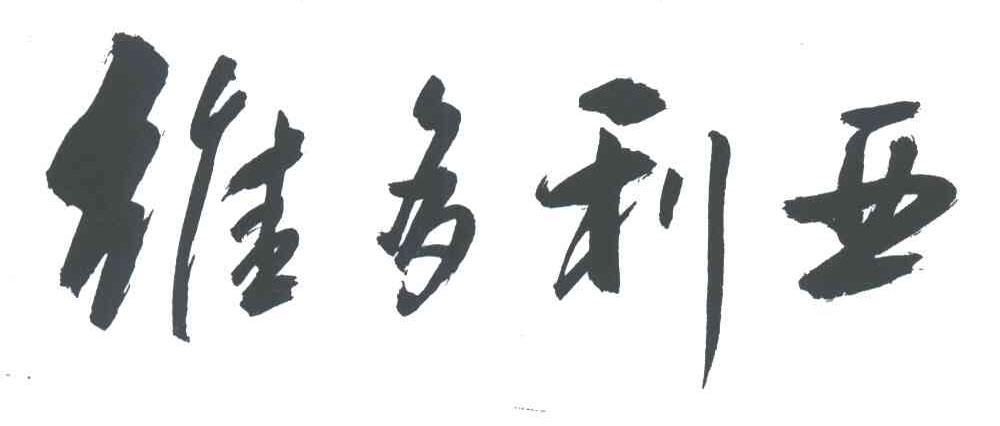 维多利亚